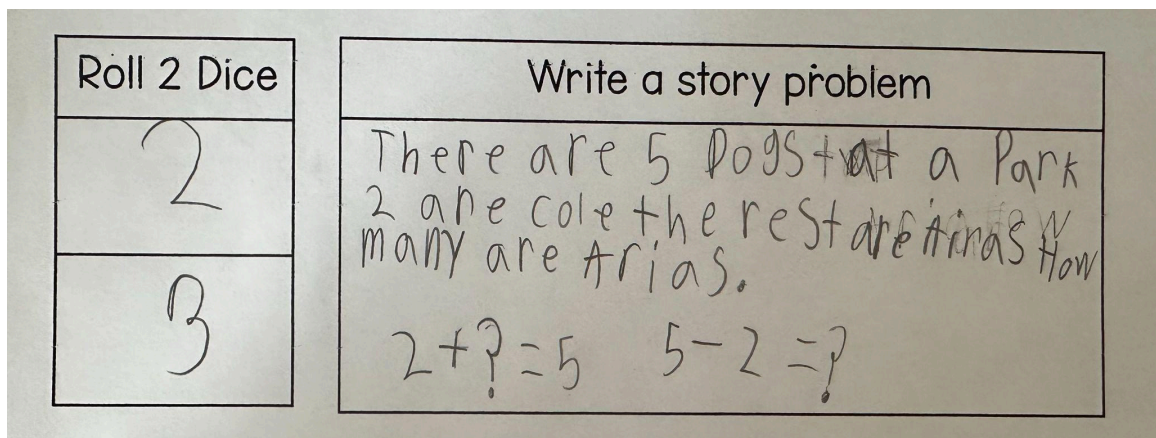 Roll 2 Dice
2
3
Write a story problem
There are 5 Dogs at a Park
2 are cole the rest are Airas How
many are Arias.
2+?=5 5-2=?